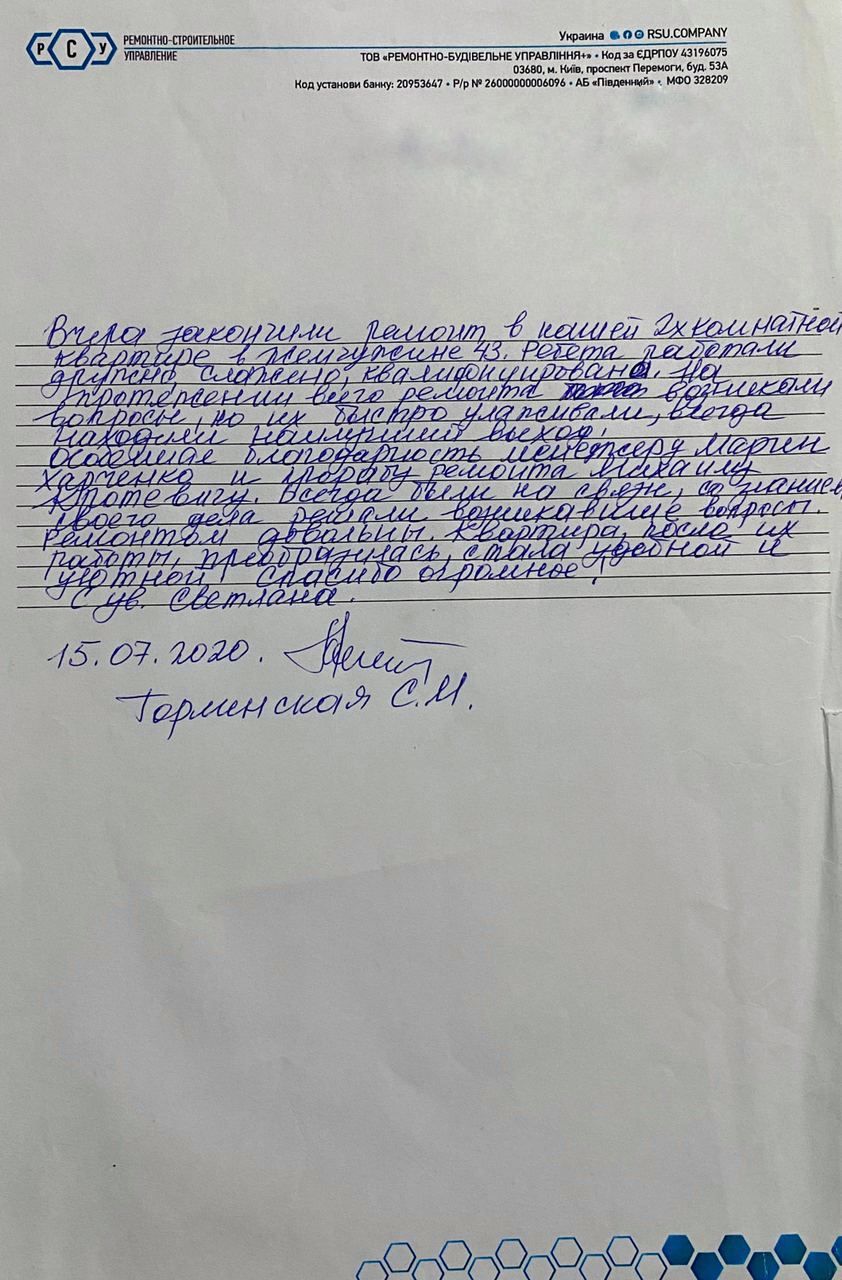 РСУ
РЕМОНТНО-СТРОИТЕЛЬНОЕ
УПРАВЛЕНИЕ
Украина RSU.COMPANY
ТОВ «РЕМОНТНО-БУДІВЕЛЬНЕ УПРАВЛІННЯ+» • Код за ЄДРПОУ 43196075
03680, м. Київ, проспект Перемоги, буд. 53А
Код установи банку: 20953647 • Р/р № 26000000006096 • АБ «Південний» • МФО 328209
Вчера закончили ремонт в нашей 2х комнатной
квартире в Жемчужине 43. Ребята работали
дружно, слажено, квалифицировано. На
протяжении всего ремонта возникали
вопросы, но их быстро улаживали, всегда
находили наилучший выход.
Особенная благодарность менеджеру Марин
Харченко и прорабу ремонта Михаилу
Кротевичу. Всегда были на связи, со знанием
своего дела решали возникавшие вопросы.
Ремонтом довольны. Квартира, после их
работы, преобразилась, стала удобной и
уютной! Спасибо огромное!
С ув. Светлана.
15.07.2020.
Горминская С.М.